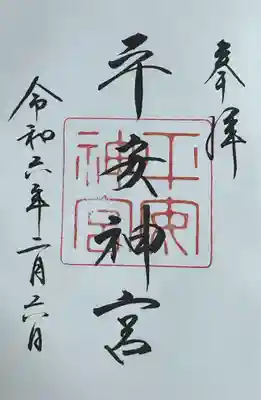 奉拝
平安神宮
平安神宮
令和六年二月六日